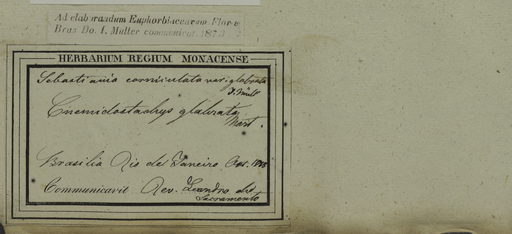 Ad elaborandum Euphorbiacearum Florae
Bras Do. I. Müller communicat. 187
HERBARIUM REGIUM MONACENSE
Sebastiania corniculata var: glabrata
J. Müll
Cnemidostachys glabrata
Mart.
Brasilia Rio de Janeiro
Communicavit Rev. Leandro do
Sacramento